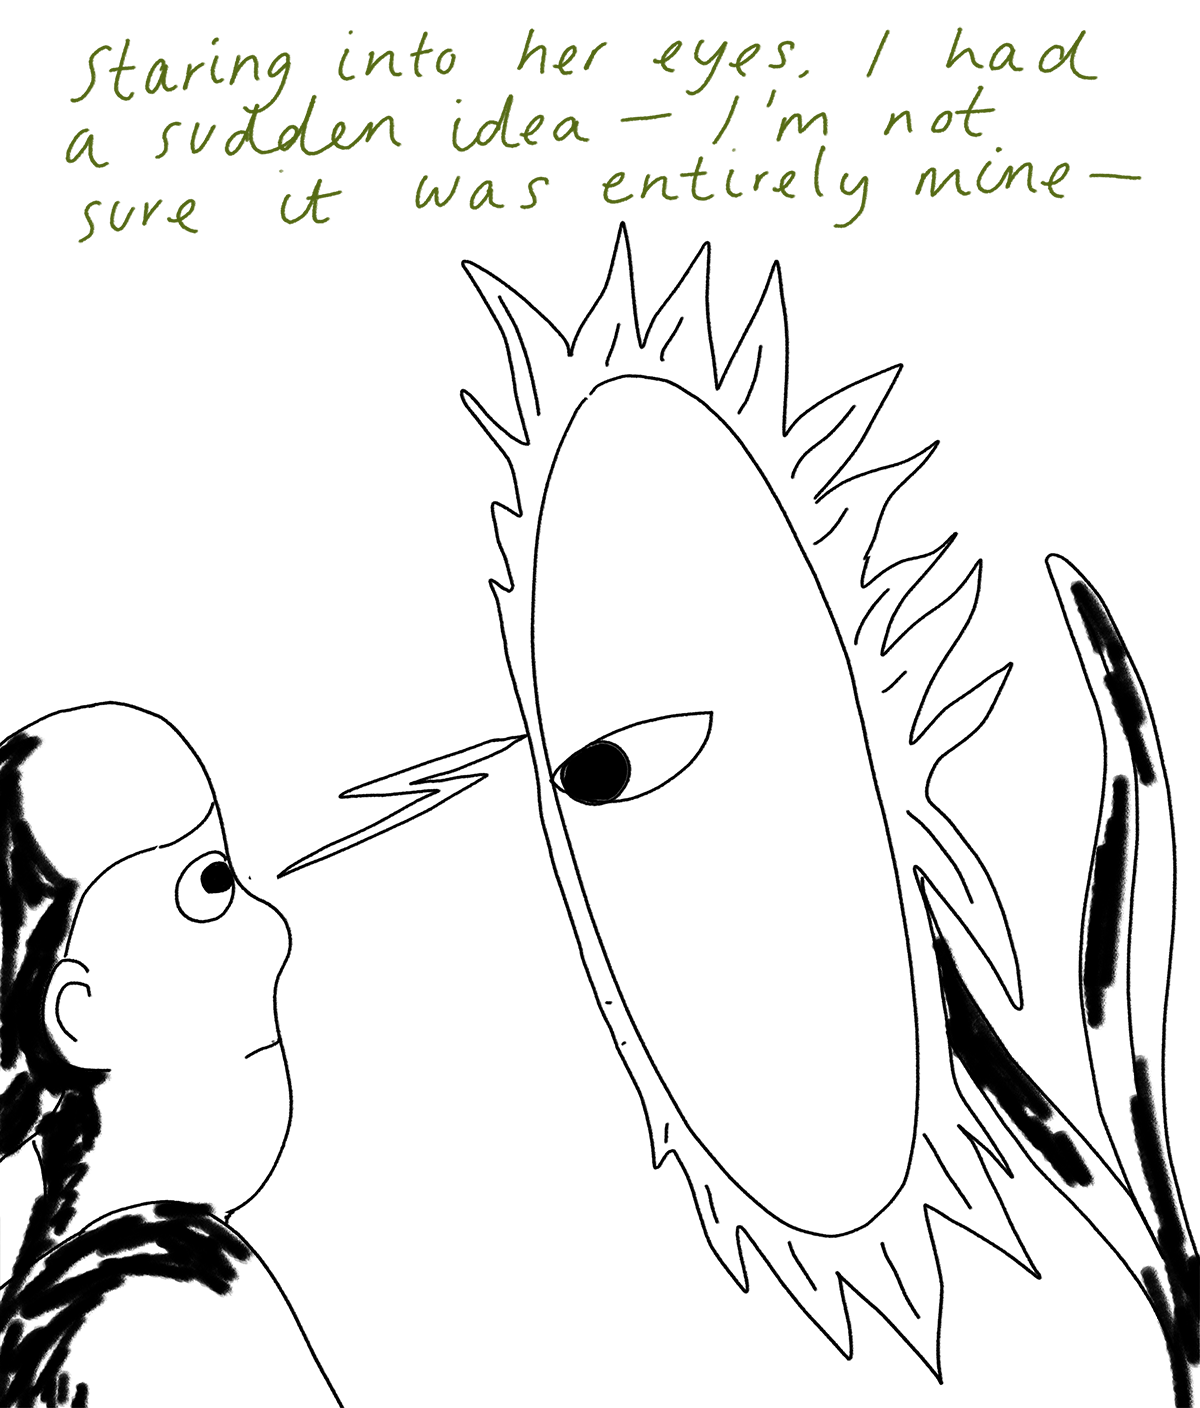 Staring into her eyes, I had
a sudden idea — I'm not
sure it was entirely mine —